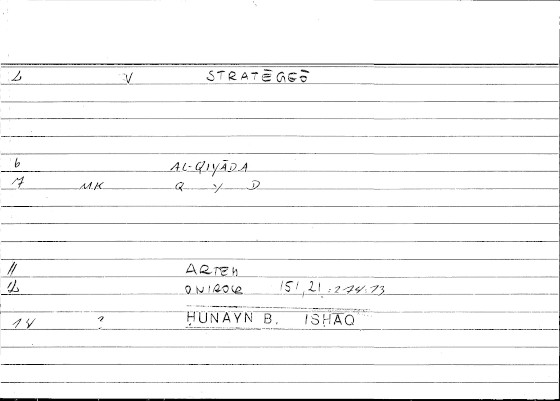 2 V STRATĒGEŌ
6 AL-QIYĀDA
7 MK Q Y D
11 ARTEM
12 ONIROCR 151,21 : 274:13
14 ? ḤUNAYN B. ISḤĀQ